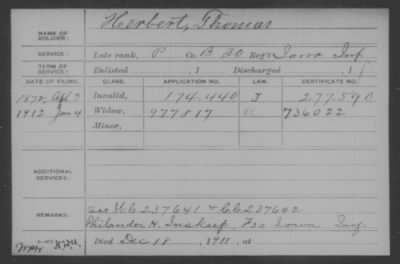 NAME OF SOLDIER: Herbert, Thomas
SERVICE: Late rank, P Co. B 30 Reg't Iowa Inf
TERM OF SERVICE: Enlisted , 1 Discharged , 1
DATE OF FILING. CLASS. APPLICATION NO. LAW. CERTIFICATE NO.
1872, Apl 3 Invalid, 174.440 J 277.590
1912 Jan 4 Widow, 977817 O 736022
Minor,
ADDITIONAL SERVICES:
REMARKS: see W.C. 237641 + C.C. 237642
Philander H. Inskeep, F 30 Iowa Inf.
Died Dec 18, 1911, at